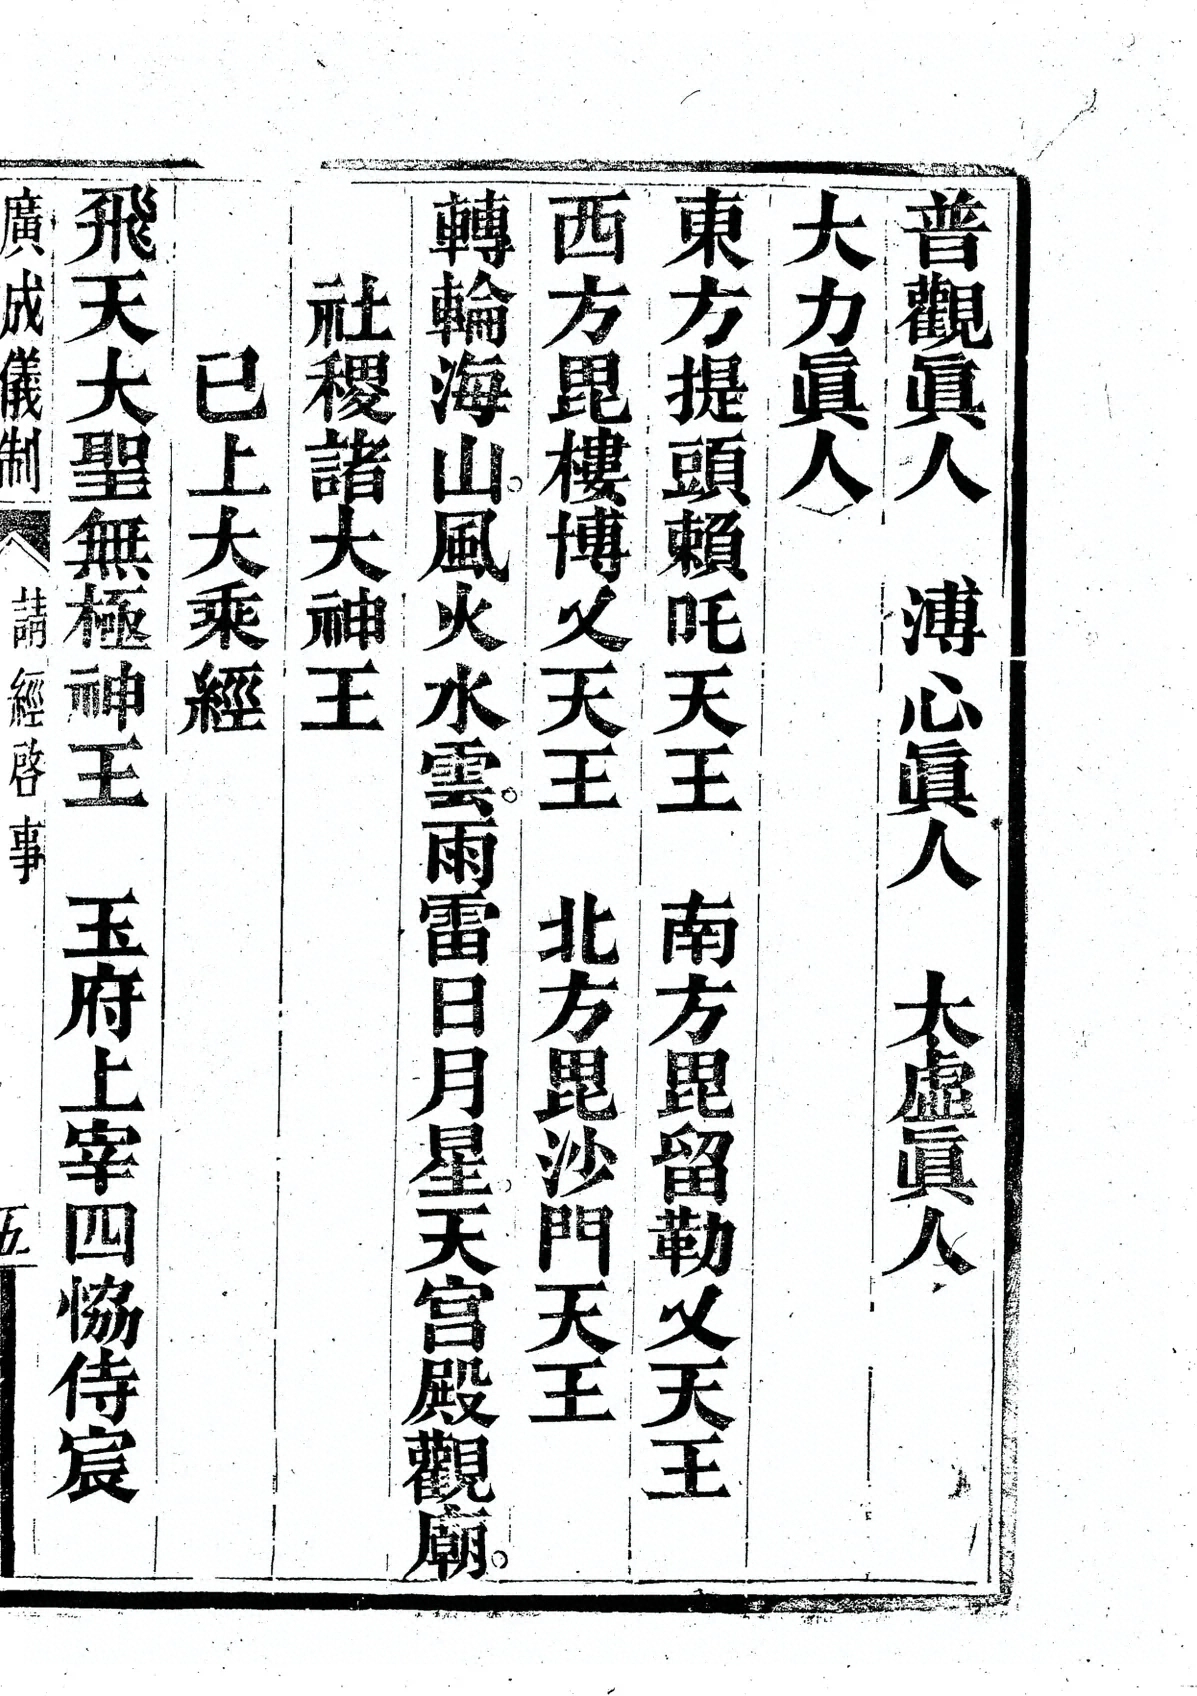 普觀眞人　溥心眞人　太虛眞人
大力眞人
東方提頭賴吒天王　南方毘留勒乂天王
西方毘樓博乂天王　北方毘沙門天王
轉輪海山。風火水雲。雨雷日月星。天宮殿觀廟。
社稷諸大神王
已上大乘經
飛天大聖無極神王　玉府上宰四恊侍宸
廣成儀制　請經啓事　五